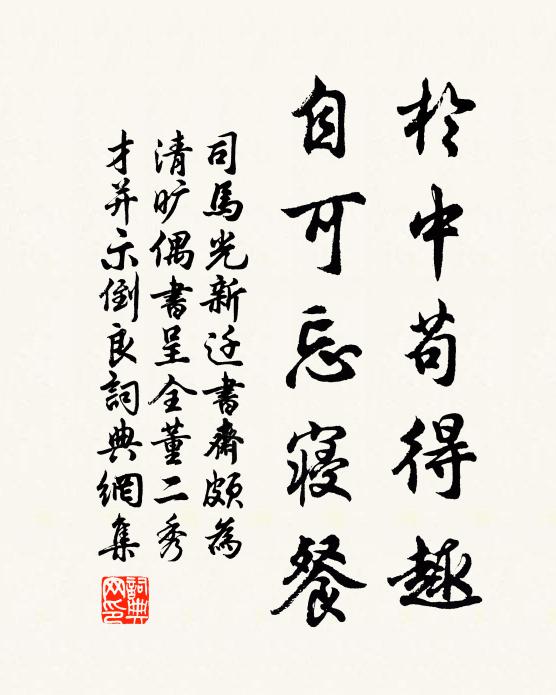 於中苟得趣
自可忘寝餐
司馬光新迁書齋頗為
清旷偶書呈全董二秀
才并示倒良詞典網集
詞典網印